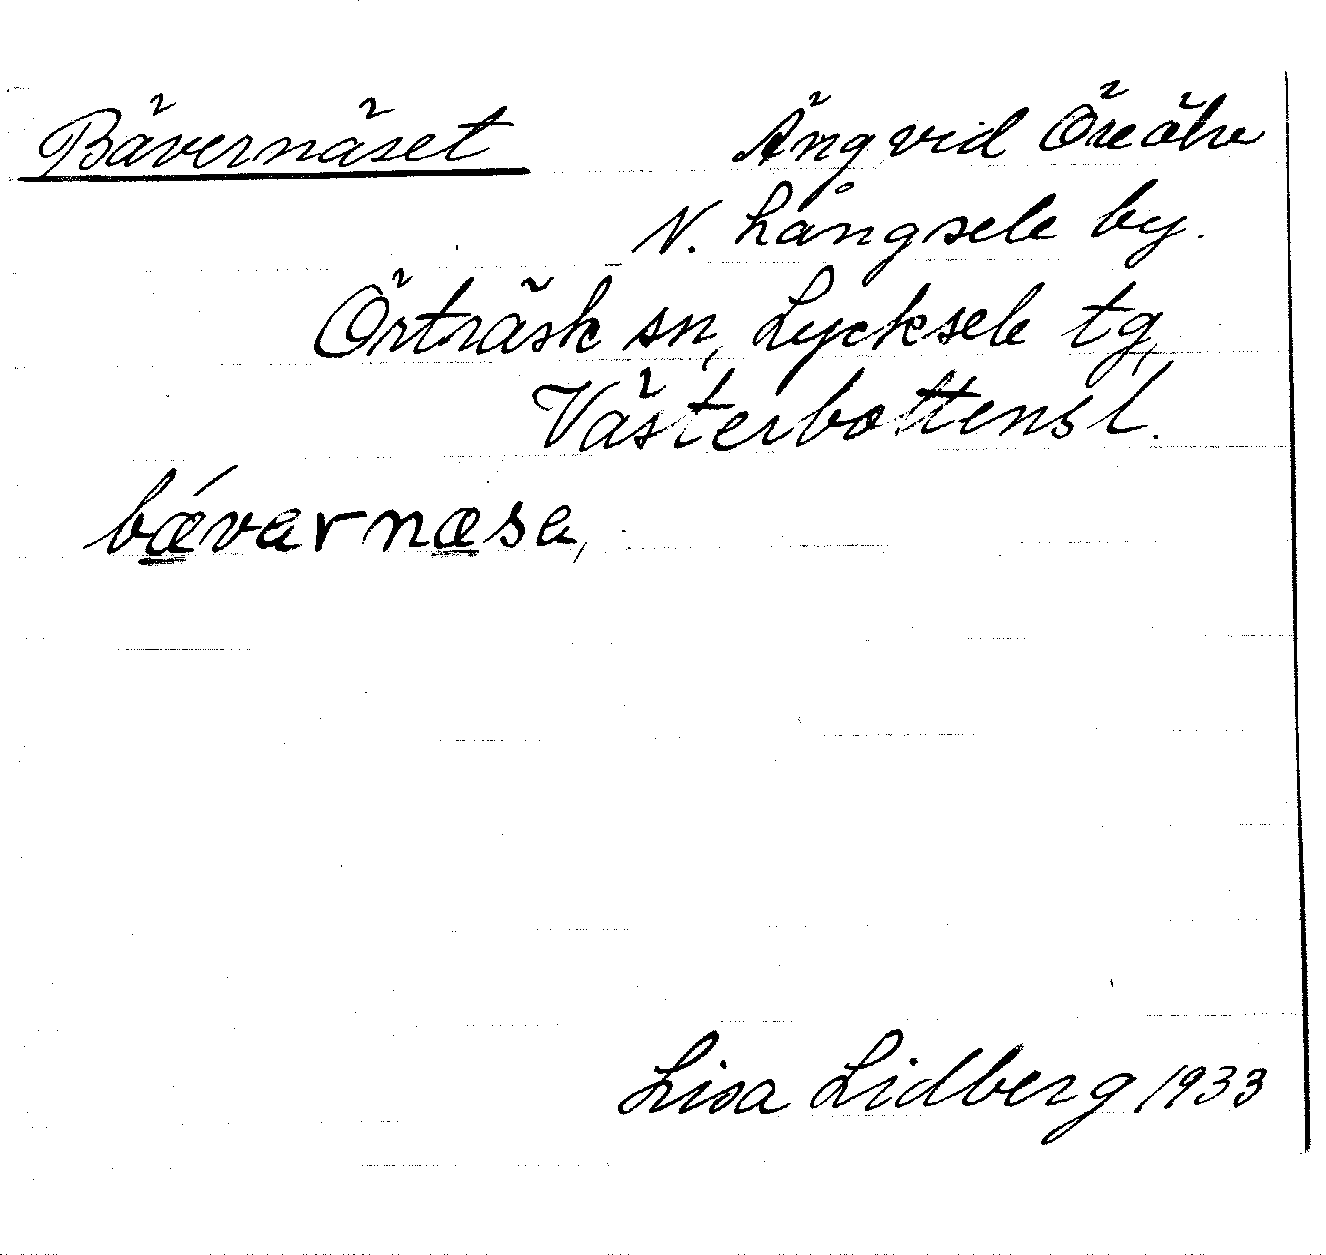 Bävernäset Äng vid Öreälv
N. Långsele by.
Örträsk sn, Lycksele tg,
Västerbottens l.
bǽvarnæsa,
Lisa Lidberg 1933